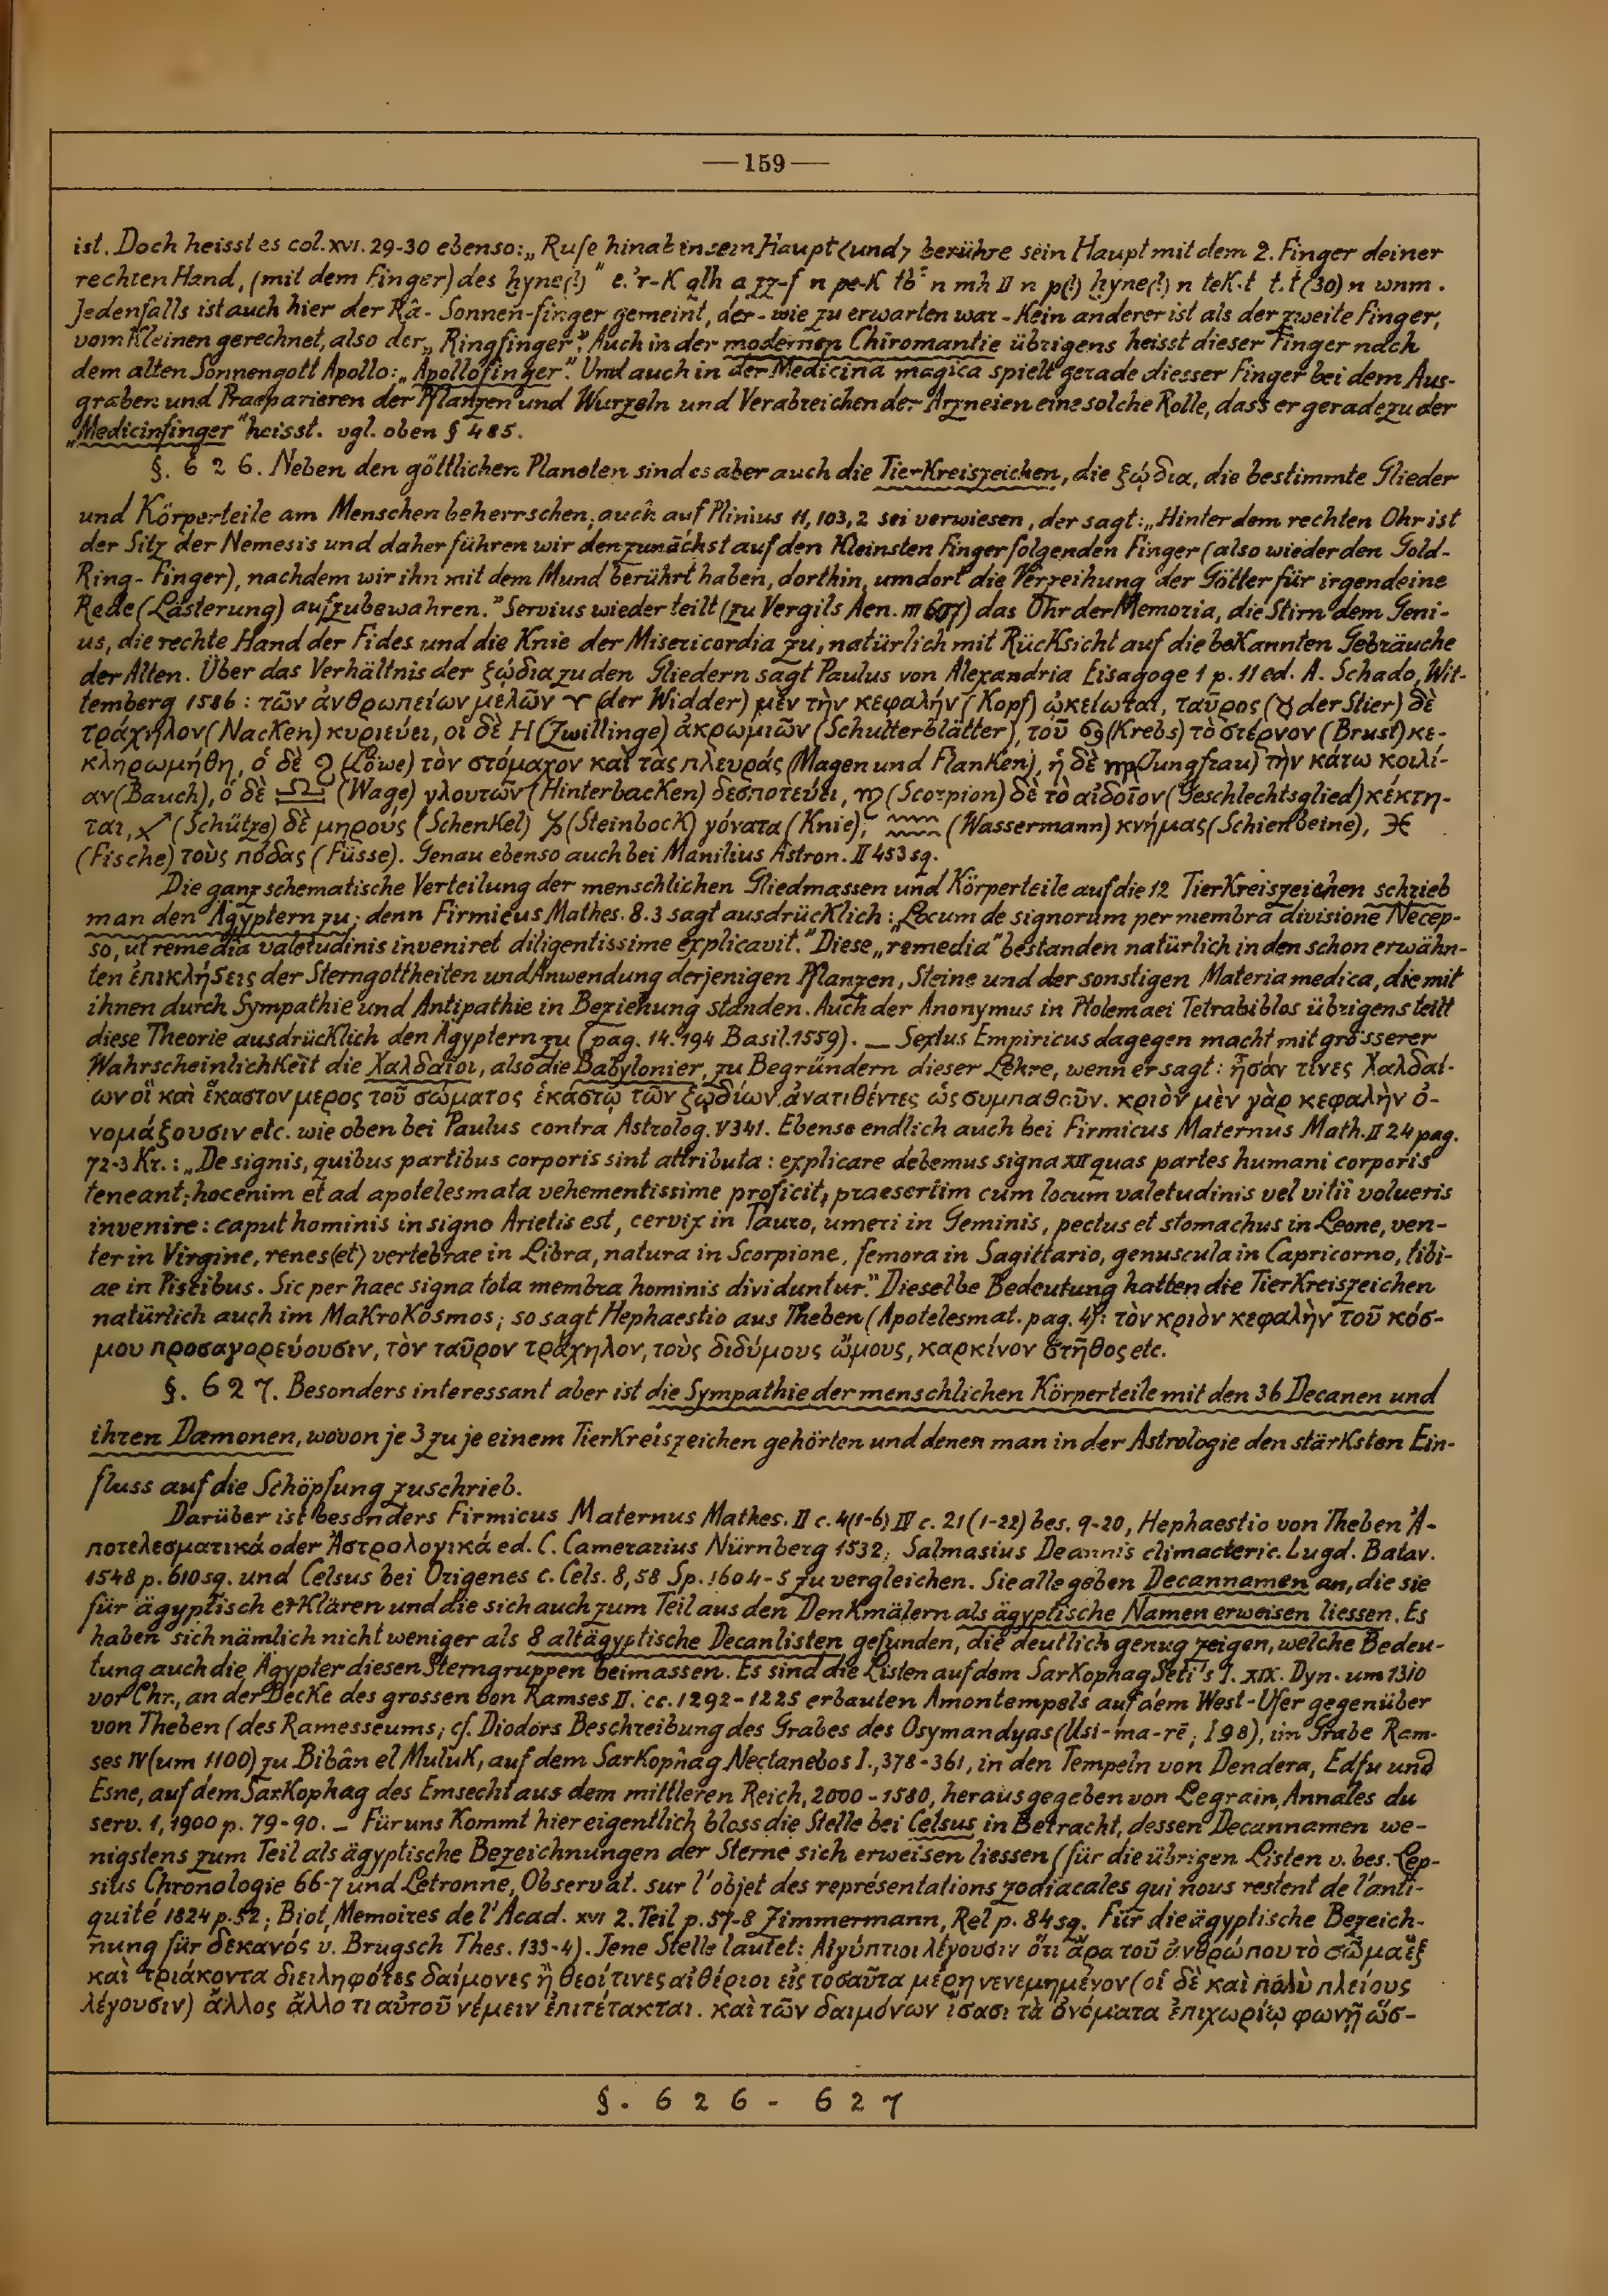 —159—
ist. Doch heisst es col. XVI. 29-30 ebenso: „Rufe hinab in sein Haupt ⟨und⟩ berühre sein Haupt mit dem 2. Finger deiner
rechten Hand, (mit dem Finger) des hyne(!)" e.'r-K qlh a zz-f n pe-K tb' n mh II n p(!) hyne(!) n teK.t t.t (30) n wnm.
Jedenfalls ist auch hier der Râ-Sonnen-finger gemeint, der - wie zu erwarten war - Kein anderer ist als der zweite Finger,
vom Kleinen gerechnet, also der „Ringfinger". Auch in der modernen Chiromantie übrigens heisst dieser Finger nach
dem alten Sonnengott Apollo: „Apollofinger". Und auch in der Medicina magica spielt gerade diesser Finger bei dem Aus-
graben und Praeparieren der Pflanzen und Wurzeln und Verabreichen der Arzneien eine solche Rolle, dass er geradezu der
„Medicinfinger" heisst. vgl. oben § 485.
§. 626. Neben den göttlichen Planeten sind es aber auch die TierKreiszeichen, die ξῴδια, die bestimmte Glieder
und Körperteile am Menschen beherrschen, auch auf Plinius 11, 103, 2 sei verwiesen, der sagt: „Hinter dem rechten Ohr ist
der Sitz der Nemesis und daher führen wir den zunächst auf den Kleinsten Finger folgenden Finger (also wieder den Gold-
Ring-Finger), nachdem wir ihn mit dem Mund berührt haben, dorthin, um dort die Verzeihung der Götter für irgendeine
Rede (Lästerung) aufzubewahren." Servius wieder teilt (zu Vergils Aen. III 607) das Ohr der Memoria, die Stirn dem Geni-
us, die rechte Hand der Fides und die Knie der Misericordia zu, natürlich mit RücKsicht auf die beKannten Gebräuche
der Alten. Über das Verhältnis der ξῴδια zu den Gliedern sagt Paulus von Alexandria Eisagoge 1 p. 11 ed. A. Schado, Wit-
temberg 1586: τῶν ἀνθρωπείων μελῶν ♈ (der Widder) μὲν τὴν κεφαλήν (Kopf) ᾠκείωται, ταῦρος (♉ der Stier) δὲ
τράχηλον (NacKen) κυριεύει, οἱ δὲ ♊ (Zwillinge) ἀκρωμιῶν (Schulterblätter), τοῦ ♋ (Krebs) τὸ στέρνον (Brust) κε-
κληρωμήθη, ὁ δὲ ♌ (Löwe) τὸν στόμαχον καὶ τὰς πλευράς (Magen und FlanKen), ἡ δὲ ♍ (Jungfrau) τὴν κάτω κοιλί-
αν (Bauch), ὁ δὲ ♎ (Wage) γλουτῶν (HinterbacKen) δεσποτεύει, ♏ (Scorpion) δὲ τὸ αἰδοῖον (Geschlechtsglied) κέκτη-
ται, ♐ (Schütze) δὲ μηροὺς (SchenKel) ♑ (Steinbock) γόνατα (Knie), ♒ (Wassermann) κνήμας (Schienbeine), ♓
(Fische) τοὺς πόδας (Füsse). Genau ebenso auch bei Manilius Astron. II 453 sq.
Die ganz schematische Verteilung der menschlichen Gliedmassen und Körperteile auf die 12 TierKreiszeichen schrieb
man den Ägyptern zu; denn Firmicus Mathes. 8.3 sagt ausdrücKlich: „Locum de signorum per membra divisione Necep-
so, ut remedia valetudinis inveniret diligentissime explicavit." Diese „remedia" bestanden natürlich in den schon erwähn-
ten ἐπικλήσεις der Sterngottheiten und Anwendung derjenigen Pflanzen, Steine und der sonstigen Materia medica, die mit
ihnen durch Sympathie und Antipathie in Beziehung standen. Auch der Anonymus in Ptolemaei Tetrabiblos übrigens teilt
diese Theorie ausdrücKlich den Ägyptern zu (pag. 14. 194 Basil. 1559). — Sextus Empiricus dagegen macht mit grösserer
WahrscheinlichKeit die Χαλδαῖοι, also die Babylonier, zu Begründern dieser Lehre, wenn er sagt: ἦσάν τινες Χαλδαί-
ων οἳ καὶ ἕκαστον μερος τοῦ σώματος ἑκάστῳ τῶν ξῳδίων ἀνατιθέντες ὡς συμπαθοῦν. κριὸν μὲν γὰρ κεφαλὴν ὀ-
νομάξουσιν etc. wie oben bei Paulus contra Astrolog. V 341. Ebenso endlich auch bei Firmicus Maternus Math. II 24 pag.
72-3 Kr.: „De signis, quibus partibus corporis sint attributa: explicare debemus signa XII quas partes humani corporis
teneant; hoc enim et ad apotelesmata vehementissime proficit, praesertim cum locum valetudinis vel vitii volueris
invenire: caput hominis in signo Arietis est, cervix in Tauro, umeri in Geminis, pectus et stomachus in Leone, ven-
ter in Virgine, renes ⟨et⟩ vertebrae in Libra, natura in Scorpione, femora in Sagittario, genuscula in Capricorno, tibi-
ae in Piscibus. Sic per haec signa tota membra hominis dividuntur." Dieselbe Bedeutung hatten die TierKreiszeichen
natürlich auch im MaKroKosmos; so sagt Hephaestio aus Theben (Apotelesmat. pag. 4): τὸν κριὸν κεφαλὴν τοῦ κόσ-
μου προσαγορεύουσιν, τὸν ταῦρον τράχηλον, τοὺς διδύμους ὤμους, καρκίνον στῆθος etc.
§. 627. Besonders interessant aber ist die Sympathie der menschlichen Körperteile mit den 36 Decanen und
ihren Dæmonen, wovon je 3 zu je einem TierKreiszeichen gehörten und denen man in der Astrologie den stärKsten Ein-
fluss auf die Schöpfung zuschrieb.
Darüber ist besonders Firmicus Maternus Mathes. II c. 4 (1-6) IV c. 21 (1-22) bes. 9-20, Hephaestio von Theben Ἀ-
ποτελεσματικά oder Ἀστρολογικά ed. C. Camerarius Nürnberg 1532, Salmasius De annis climacteric. Lugd. Batav.
1548 p. 610 sg. und Celsus bei Origenes c. Cels. 8, 58 Sp. 1604-5 zu vergleichen. Sie alle geben Decannamen an, die sie
für ägyptisch erKlären und die sich auch zum Teil aus den DenKmälern als ägyptische Namen erweisen liessen. Es
haben sich nämlich nicht weniger als 8 altägyptische Decanlisten gefunden, die deutlich genug zeigen, welche Bedeu-
tung auch die Ägypter diesen Sterngruppen beimassen. Es sind die Listen auf dem SarKophag Seti's I. XIX. Dyn. um 1310
vor Chr., an der DecKe des grossen von Ramses II. cc. 1292-1225 erbauten Amontempels auf dem West-Ufer gegenüber
von Theben (des Ramesseums; cf. Diodors Beschreibung des Grabes des Osymandyas (Usi-ma-rē; I 98), im Grabe Ram-
ses IV (um 1100) zu Bibân el MuluK, auf dem SarKophag Nectanebos I., 378-361, in den Tempeln von Dendera, Edfu und
Esne, auf dem SarKophag des Emsecht aus dem mittleren Reich, 2000-1580, herausgegeben von Legrain, Annales du
serv. 1, 1900 p. 79-90. — Für uns Kommt hier eigentlich bloss die Stelle bei Celsus in Betracht, dessen Decannamen we-
nigstens zum Teil als ägyptische Bezeichnungen der Sterne sich erweisen liessen (für die übrigen Listen v. bes. Lep-
sius Chronologie 66-7 und Letronne, Observat. sur l'objet des représentations zodiacales qui nous restent de l'anti-
quité 1824 p. 52; Biot, Memoires de l'Acad. XVI 2. Teil p. 57-8 Zimmermann, Rel p. 84 sg. Für die ägyptische Bezeich-
nung für δεκανός v. Brugsch Thes. 133-4). Jene Stelle lautet: Αἰγύπτιοι λέγουσιν ὅτι ἄρα τοῦ ἀνθρώπου τὸ σῶμα ἓξ
καὶ τριάκοντα διειληφότες δαίμονες ἢ θεοί τινες αἰθέριοι εἰς τοσαῦτα μέρη νενεμημένον (οἱ δὲ καὶ πολὺ πλείους
λέγουσιν) ἄλλος ἄλλο τι αὐτοῦ νέμειν ἐπιτέτακται. καὶ τῶν δαιμόνων ἴσασι τὰ ὀνόματα ἐπιχωρίῳ φωνῇ ὥσ-
§. 626-627